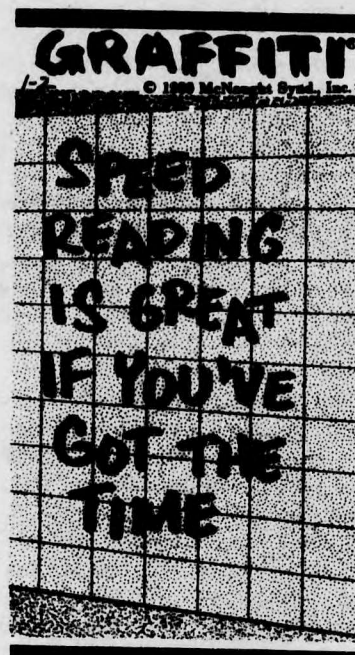 GRAFFITI
1-2-
© McNaught Synd., Inc.
SPEED
READING
IS GREAT
IF YOU'VE
GOT THE
TIME